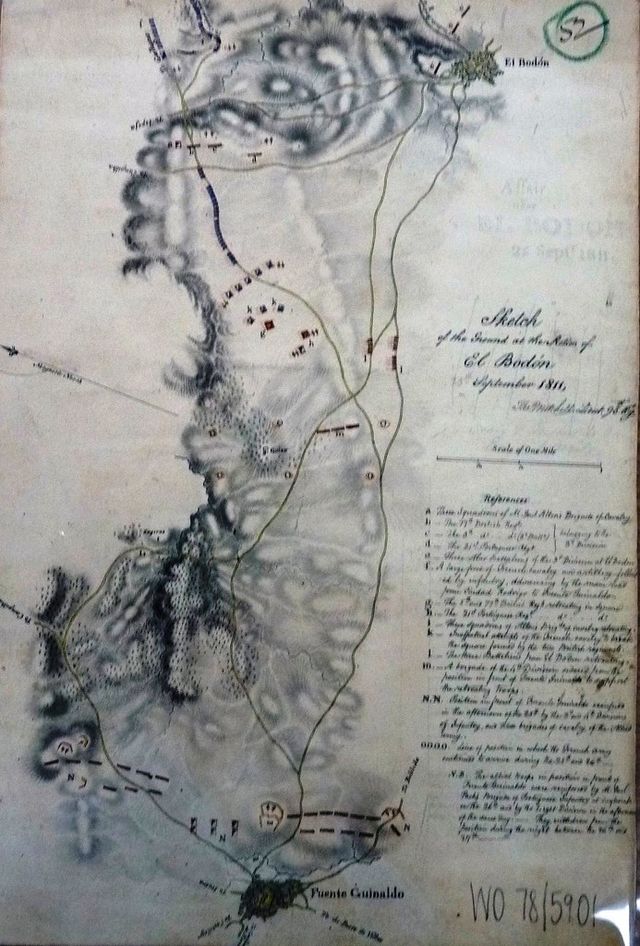 53
El Bodón
Affair
near
EL BODON
25 Septr. 1811.
Sketch
of the Ground at the Action of
El Bodón
September 1811,
Magnetic North
Scale of One Mile
References
a Three Squadrons of M. Genl. Alten's Brigade of Cavalry
b The 77th British Regt.
c The 5th do.
The 21st Portuguese Regt.
belonging to the
3d Division
e Three other Battalions of the 3d Division at El Bodon
f. A large force of French Cavalry and artillery followed
by infantry, advancing by the main road
from Ciudad Rodrigo to Fuente Guinaldo.
g The 5th and 77th British Regts. retreating in Square
h The 21st Portuguese Regt. do. do.
i Three squadrons of Alten's Brigade of cavalry retreating
k Ineffectual attempts of the French cavalry to break
the square formed by the two British regiments
l The three Battalions from El Bodon retreating
m. A brigade of the 4th Division ordered from the
position in front of Fuente Guinaldo to support
the retreating troops
N.N. Position in front of Fuente Guinaldo occupied
in the afternoon of the 25th by the 3d and 4th Divisions
of Infantry, and three brigades of cavalry of the Allied
army.
oooo. Line of position in which the French army
continued to arrive during the 25th and 26th
N.B. The allied troops in position in front of
Fuente Guinaldo were reinforced by M. Genl.
Pack's Brigade of Portuguese Infantry
on the 26th and by the Light Division in the afternoon
of the same day They withdrew from the
position during the night between the 26th and
27th
N
N
N
Fuente Guinaldo
WO 78/5901